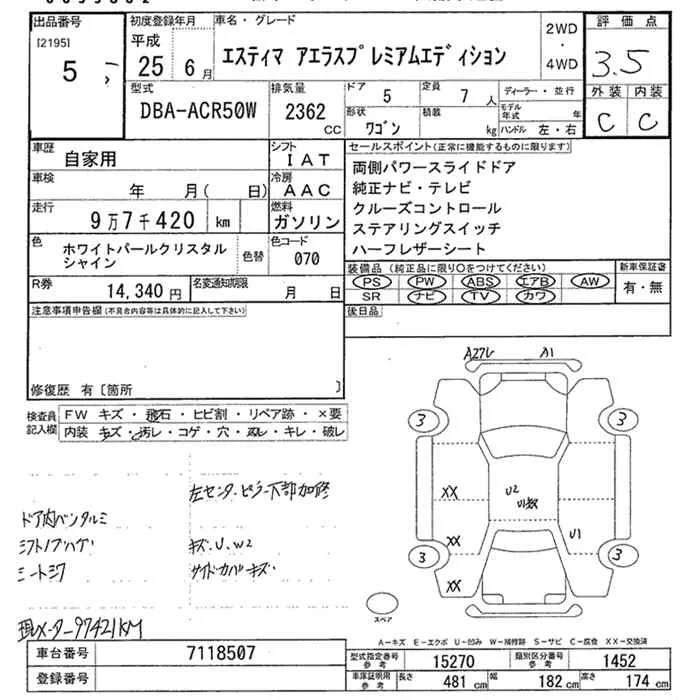 出品番号
[2195]
5
初度登録年月
平成
25 6月
車名・グレード
エスティマ アエラスプレミアムエディション
2WD
・
4WD
評価点
3.5
外装 内装
C C
型式
DBA-ACR50W
排気量
2362
CC
ドア
5
定員
7人
形状
ワゴン
積載
kg
ディーラー・並行
モデル年式 年
ハンドル 左・右
車歴
自家用
シフト
IAT
車検
年 月( 日)
冷房
AAC
走行
9万7千420 km
燃料
ガソリン
色
ホワイトパールクリスタル
シャイン
色替
色コード
070
R券
14,340円
名変通知期限
月 日
セールスポイント(正常に機能するものに限ります)
両側パワースライドドア
純正ナビ・テレビ
クルーズコントロール
ステアリングスイッチ
ハーフレザーシート
装備品(純正品に限り○をつけてください)
PS PW ABS エアB AW
SR ナビ TV カワ
新車保証書
有・無
後日品
注意事項申告欄(不具合内容等は具体的に記入して下さい)
修復歴 有〔箇所 〕
検査員
記入欄
FW キズ・飛石・ヒビ割・リペア跡・×要
内装 キズ・汚レ・コゲ・穴・スレ・キレ・破レ
左センターピラー下部加修
ドア内ベンタルミ
シフトノブハゲ
シートシワ
キズ、U、W2
サイドカバーキズ
現メーター97421KM
A1
3 3
XX
U2
XX
U1
3 3
XX
スペア
A-キズ E-エクボ U-凹み W-補修跡 S-サビ C-腐食 XX-交換済
車台番号
7118507
登録番号
型式指定番号
参考
15270
類別区分番号
参考
1452
車庫証明用
参考
長さ
481 cm
幅
182 cm
高さ
174 cm